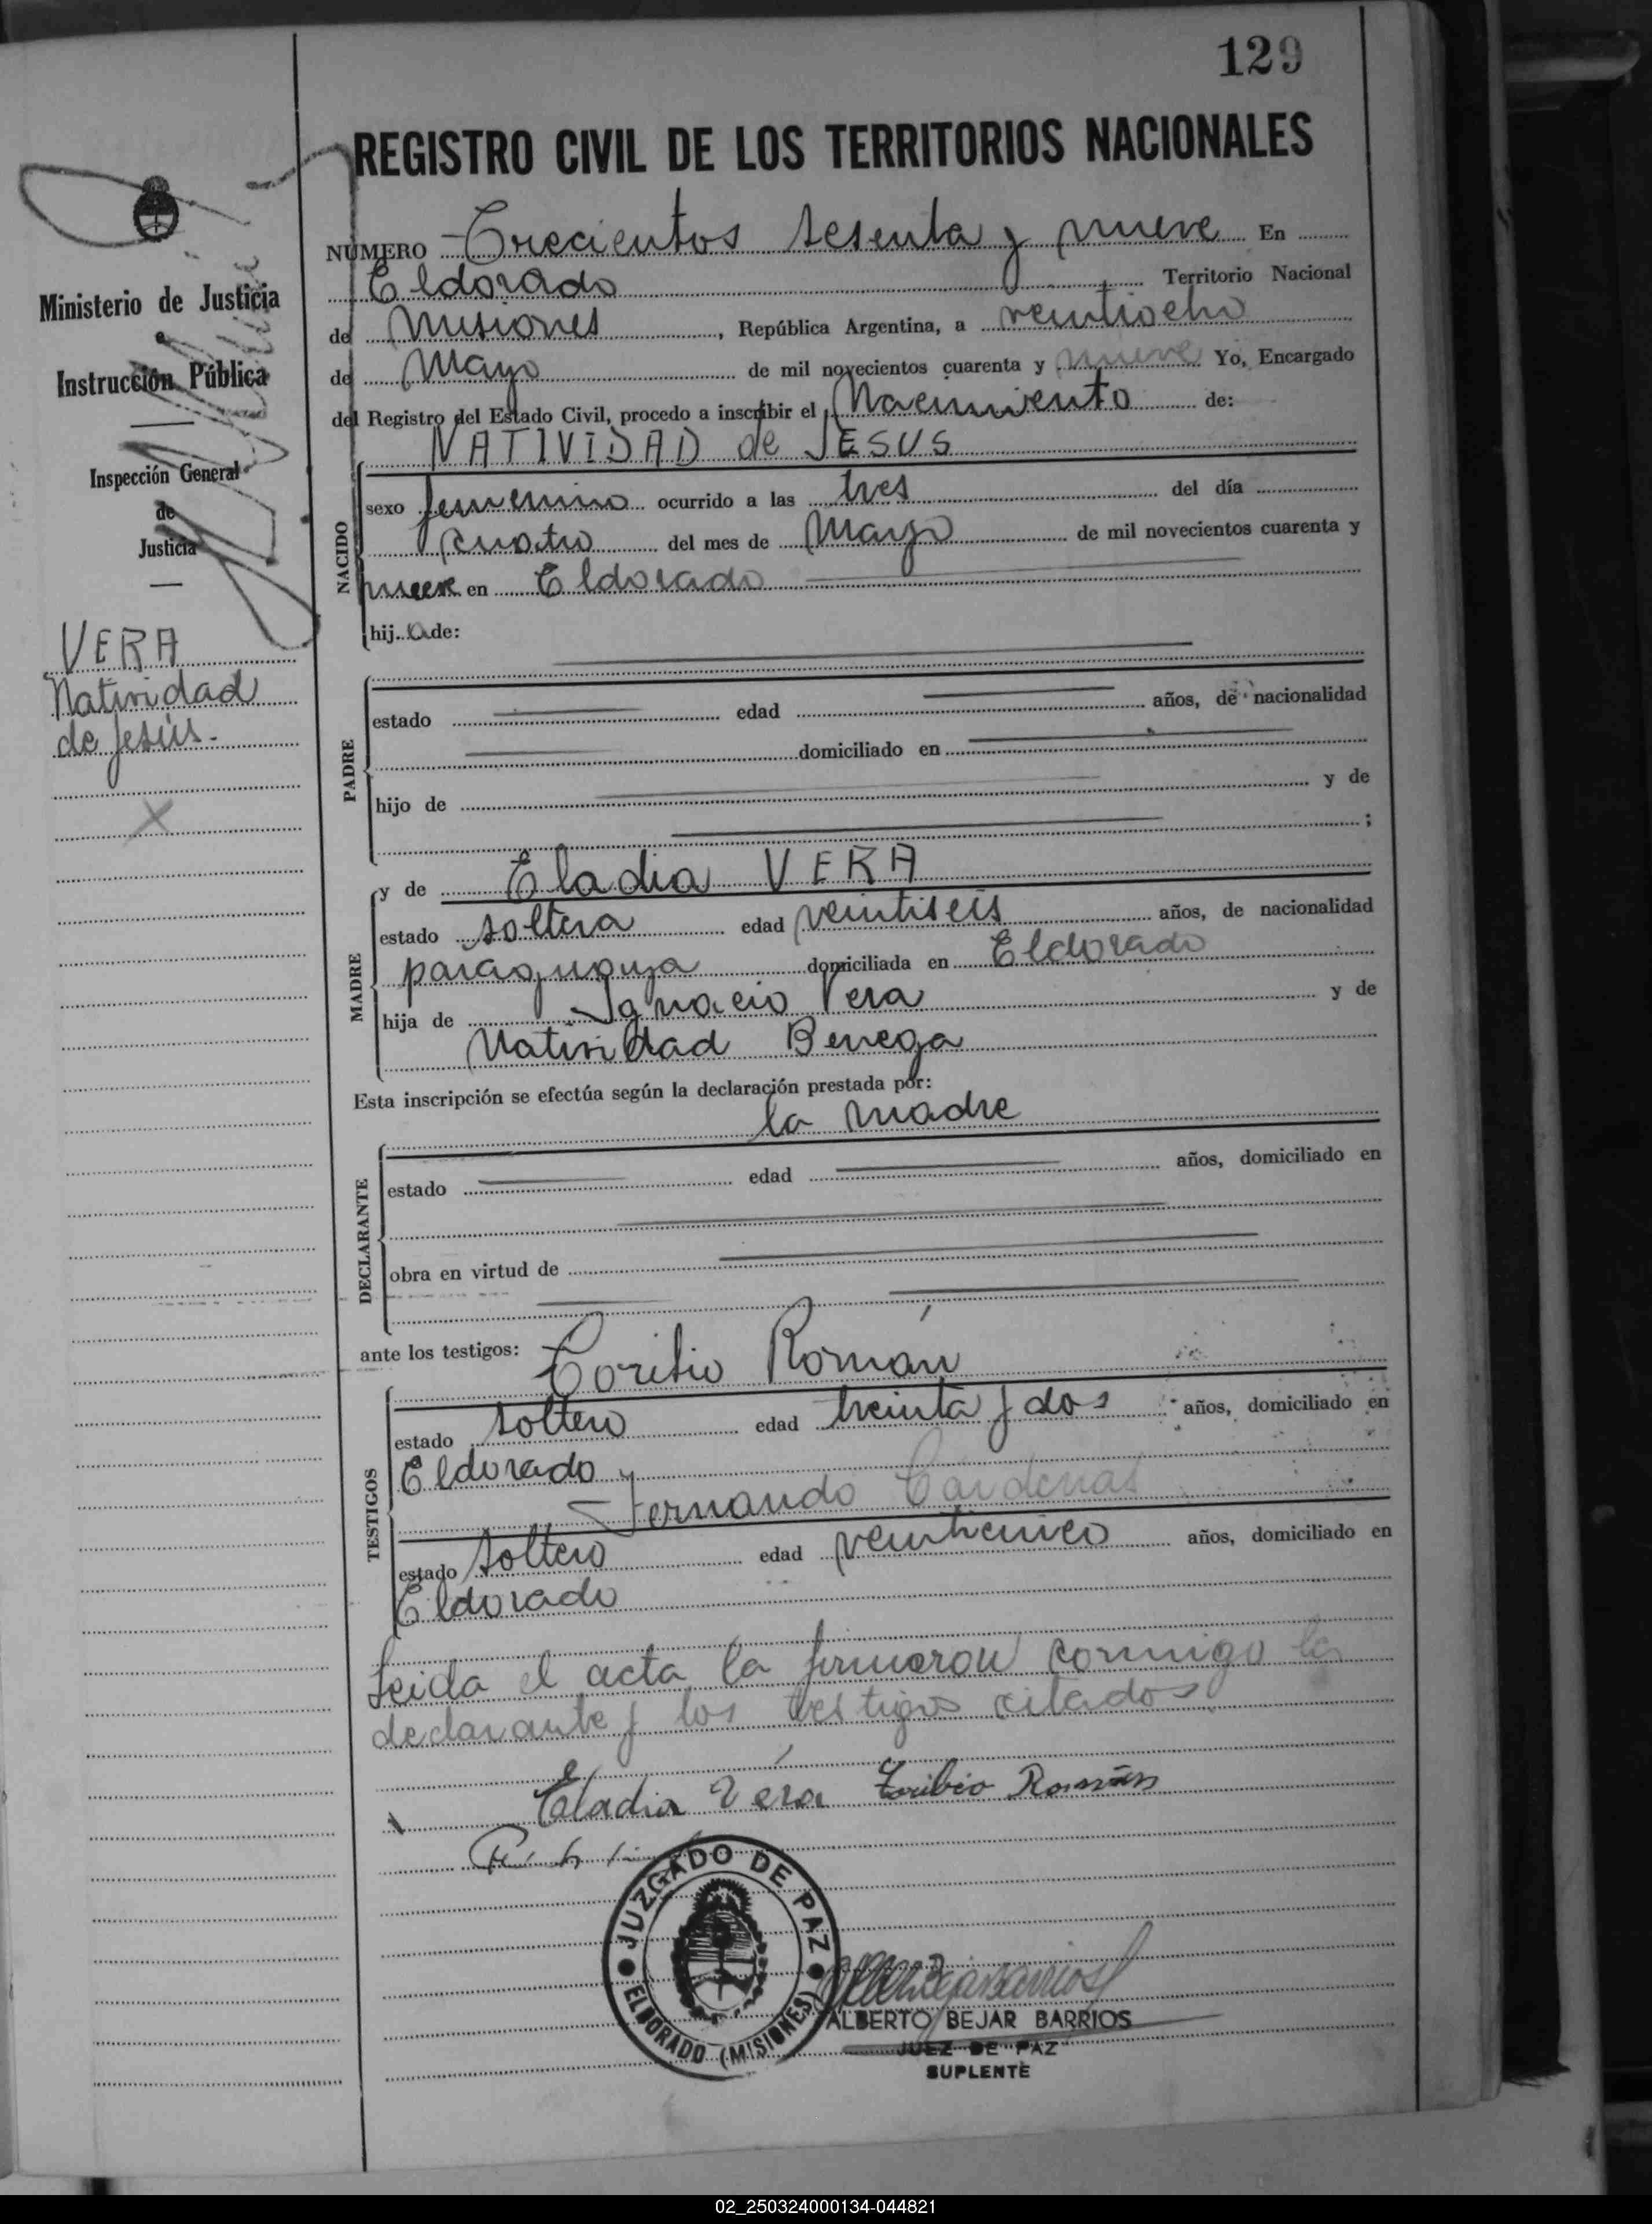 129
REGISTRO CIVIL DE LOS TERRITORIOS NACIONALES
Ministerio de Justicia
e
Instrucción Pública
Inspección General
de
Justicia
VERA
Natividad
de Jesús.-
NÚMERO Trecientos sesenta y nueve En
Eldorado Territorio Nacional
de Misiones, República Argentina, a veintiocho
de Mayo de mil novecientos cuarenta y nueve Yo, Encargado
del Registro del Estado Civil, procedo a inscribir el Nacimiento de:
NATIVIDAD de JESUS
NACIDO
sexo femenino ocurrido a las tres del día
cuatro del mes de Mayo de mil novecientos cuarenta y
nueve en Eldorado
hija de:
PADRE
estado edad años, de nacionalidad
domiciliado en
hijo de y de
;
y de Eladia VERA
MADRE
estado soltera edad veintiseis años, de nacionalidad
paraguaya domiciliada en Eldorado
hija de Ignacio Vera y de
Natividad Benega
Esta inscripción se efectúa según la declaración prestada por:
la madre
DECLARANTE
estado edad años, domiciliado en
obra en virtud de
ante los testigos: Toribio Román
TESTIGOS
estado soltero edad treinta y dos años, domiciliado en
Eldorado y
Fernando Cardenas
estado soltero edad veinticinco años, domiciliado en
Eldorado
Leida el acta la firmaron conmigo la
declarante y los testigos citados
Eladia Vera Toribio Román
JUZGADO DE PAZ
ELDORADO (MISIONES)
ALBERTO BEJAR BARRIOS
JUEZ DE PAZ
SUPLENTE
02_250324000134-044821